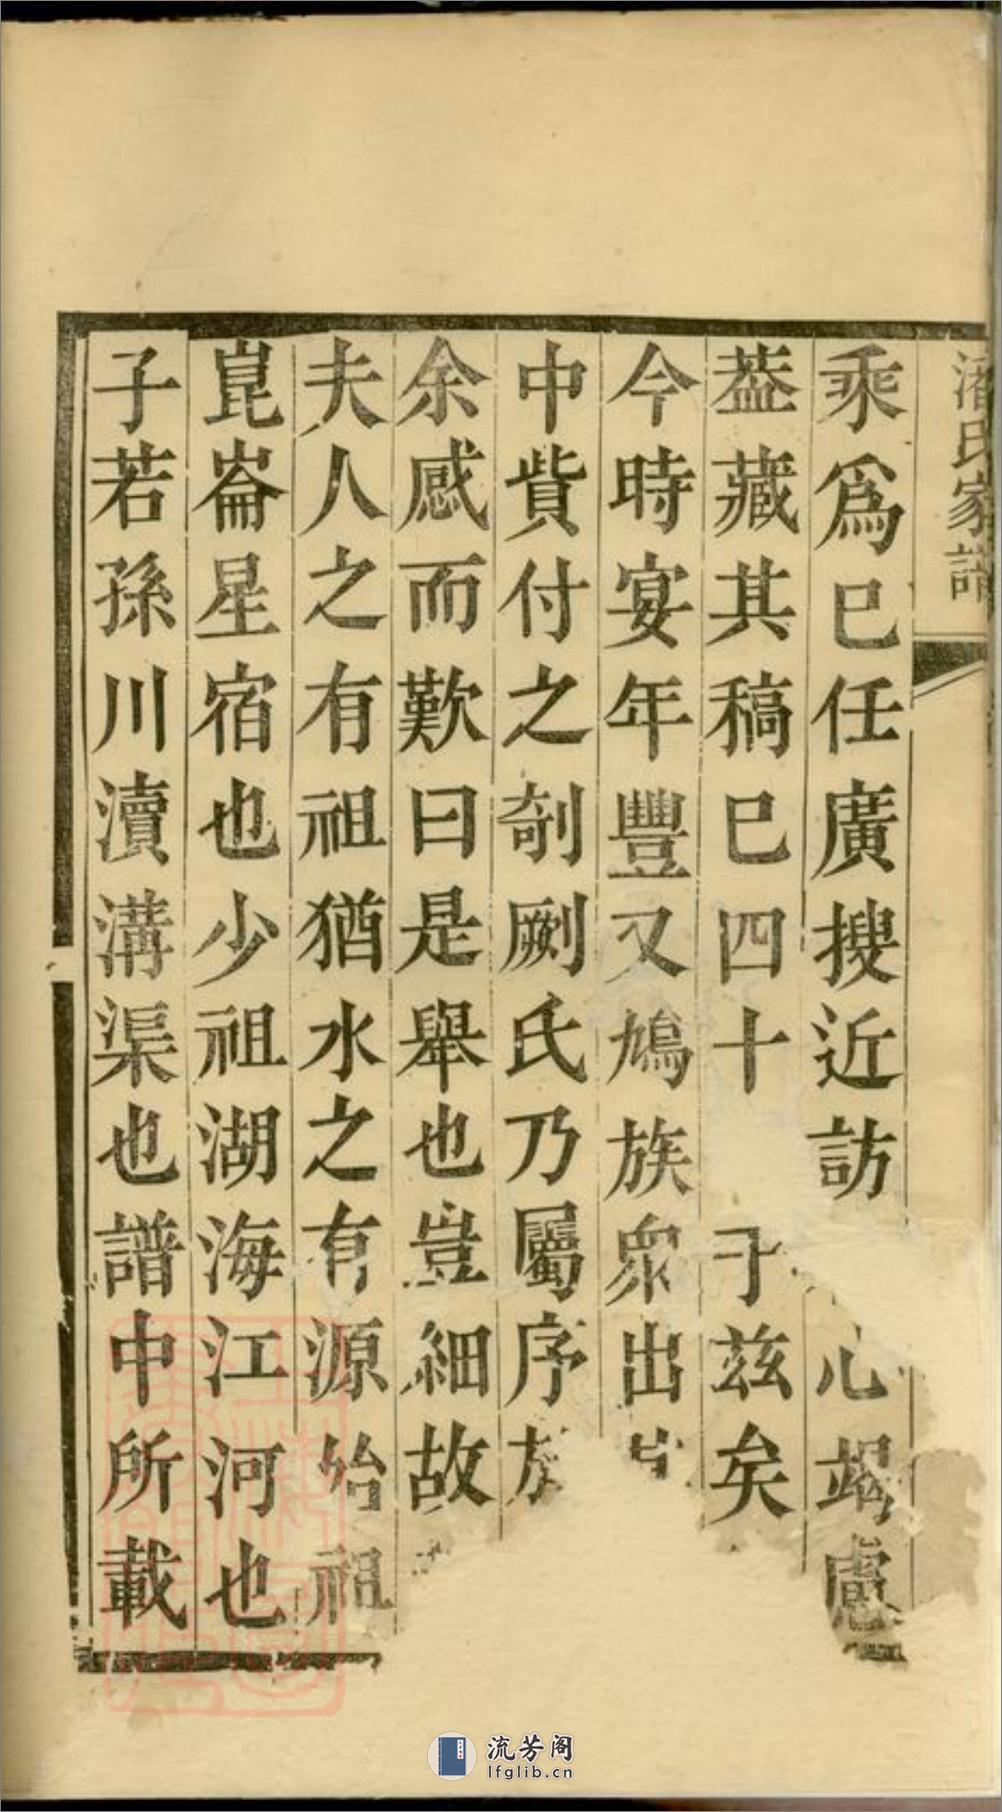 潘氏家譜
乘爲已任廣搜近訪心竭慮
葢藏其稿已四十于茲矣
今時宴年豐又鳩族衆出
中貲付之剞劂氏乃屬序
余感而歎曰是舉也豈細故
夫人之有祖猶水之有源始祖
崑崙星宿也少祖湖海江河也
子若孫川瀆溝渠也譜中所載
流芳阁
lfglib.cn